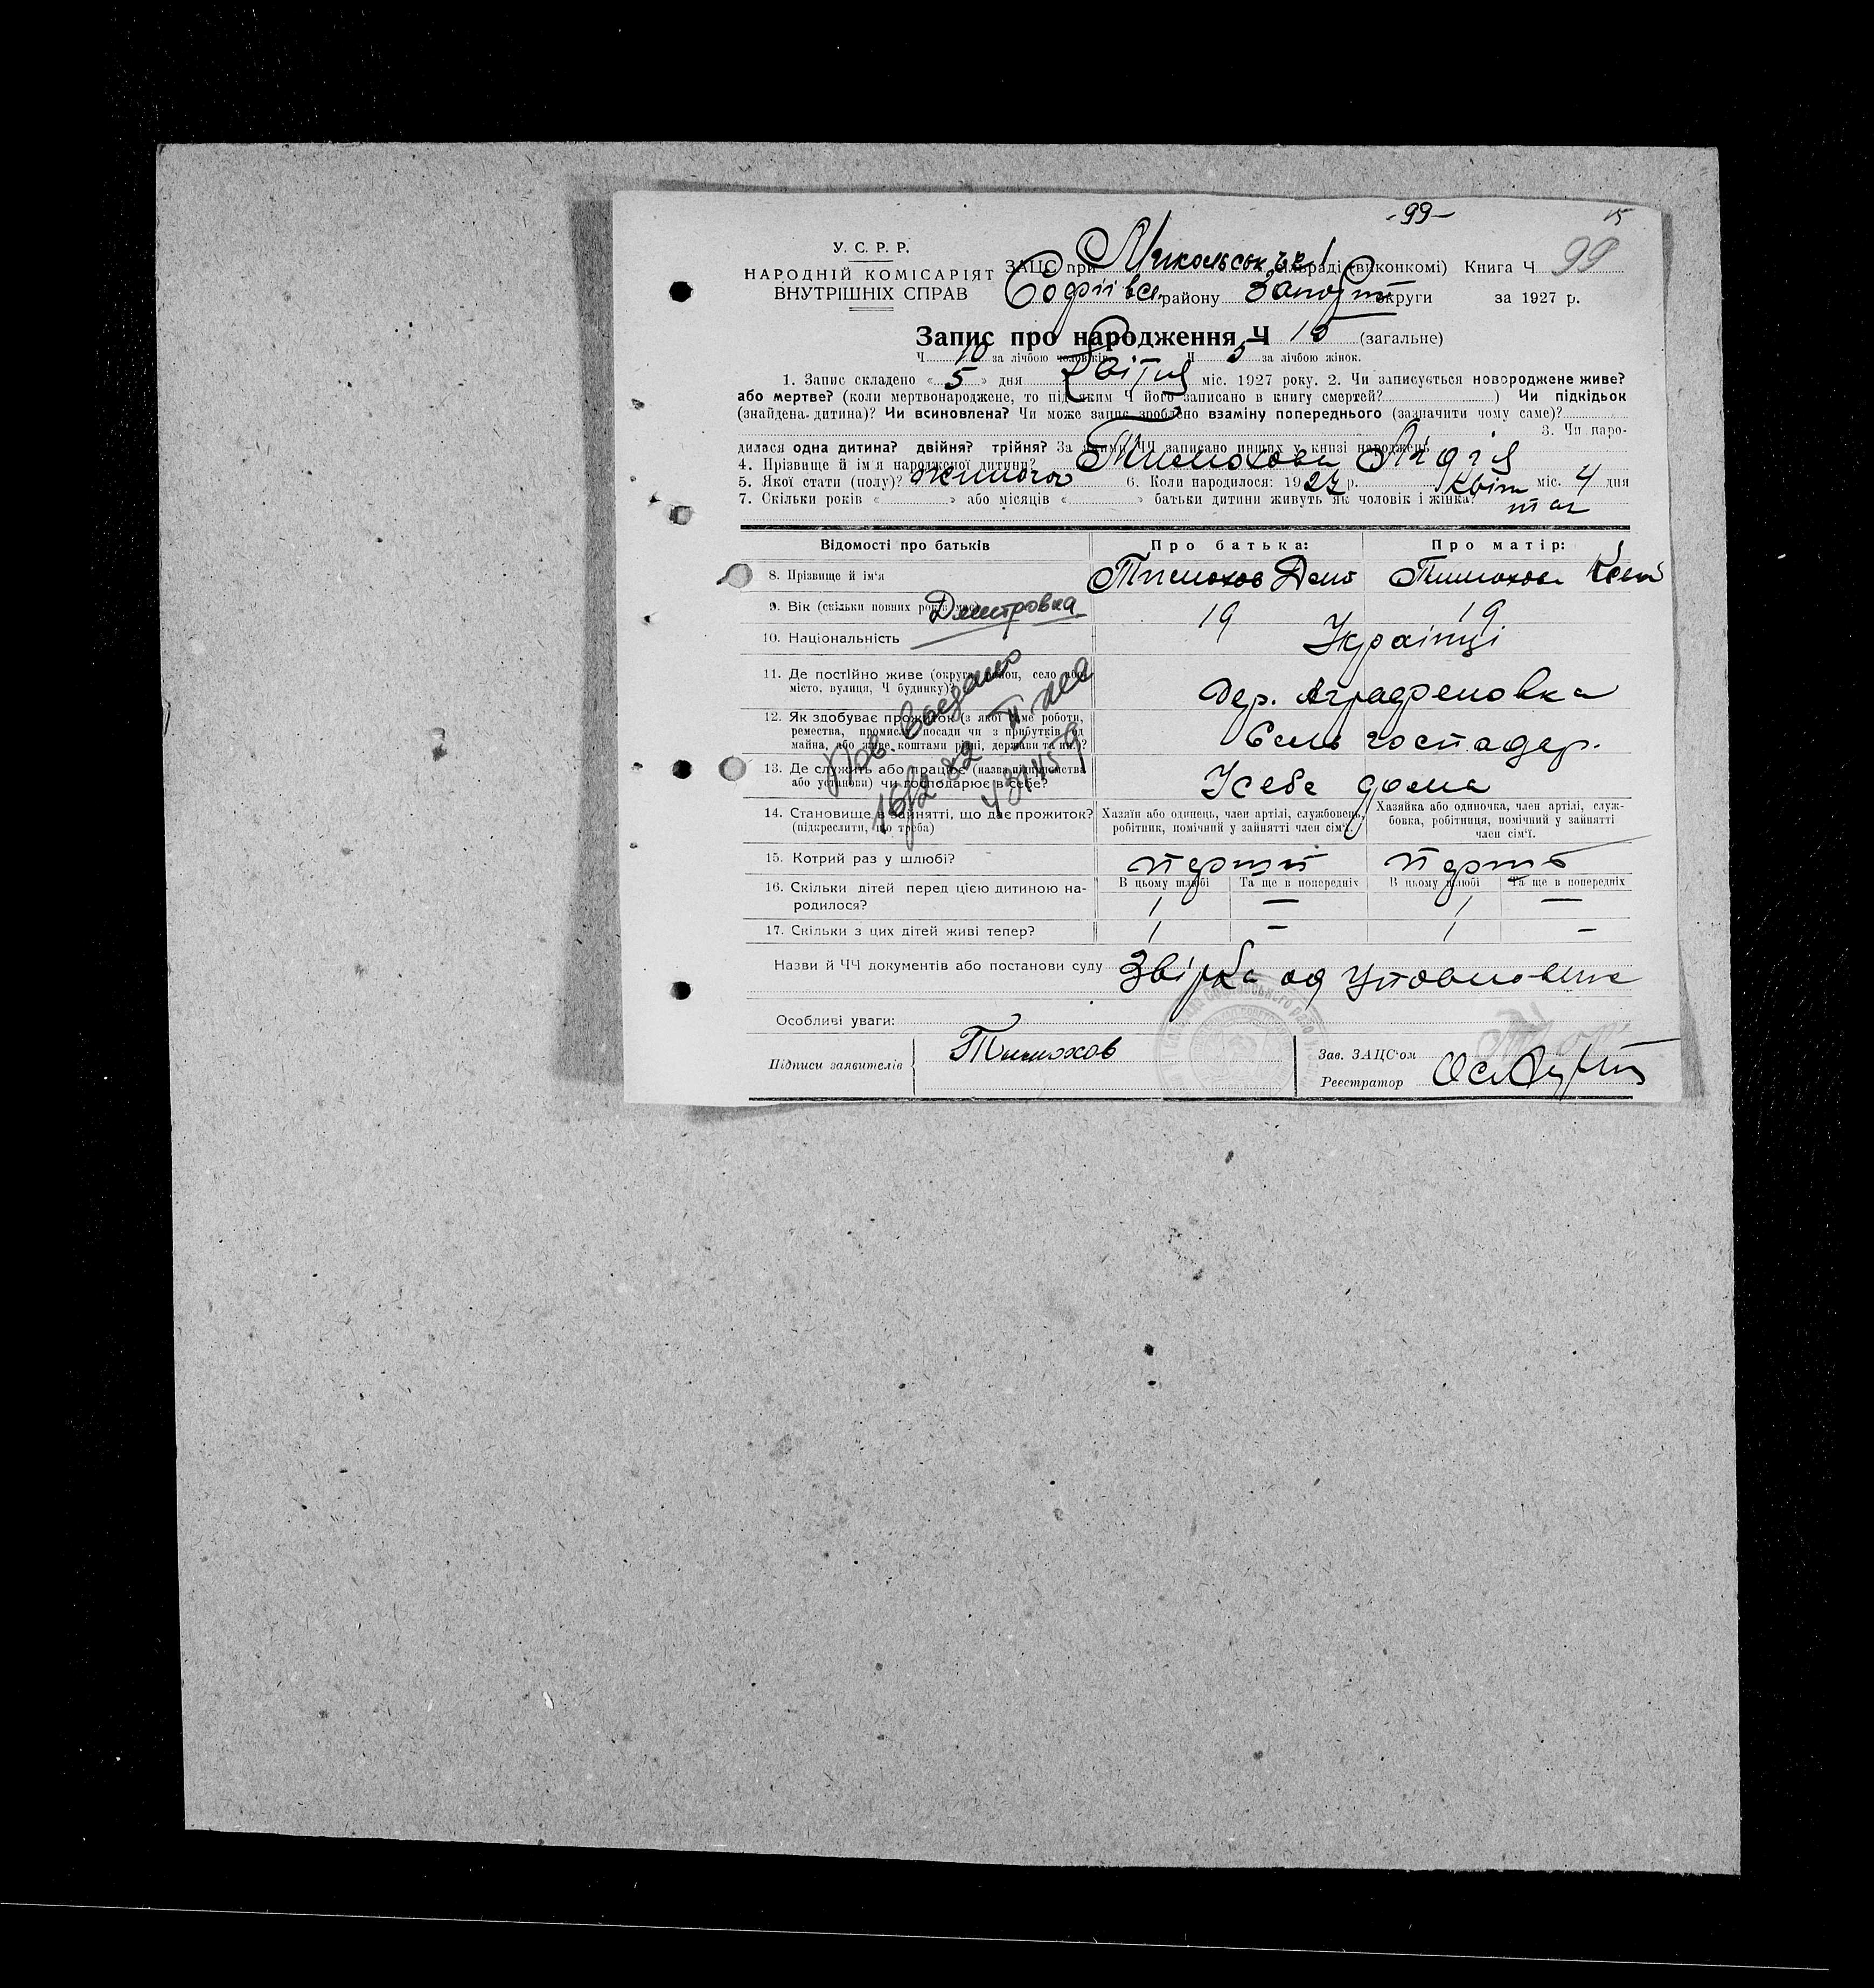 -99-
15
У. С. Р. Р.
НАРОДНІЙ КОМІСАРІЯТ
ВНУТРІШНІХ СПРАВ
ЗАЦС при сільраді (виконкомі) Книга Ч 99
Софіївськ. району Запоріж округи за 1927 р.
Запис про народження Ч 15 (загальне)
Ч 10 за лічбою чоловіків. Ч 5 за лічбою жінок.
1. Запис складено «5» дня Квітня міс. 1927 року. 2. Чи записується новороджене живе?
або мертве? (коли мертвонароджене, то під яким Ч його записано в книгу смертей? ) Чи підкідьок
(знайдена дитина)? Чи всиновлена? Чи може запис зроблено взаміну попереднього (зазначити чому саме)?
3. Чи наро-
дилася одна дитина? двійня? трійня? За якими ЧЧ записано инших у книзі народжень
4. Прізвище й ім'я народженої дитини? Тимохова Лідія
5. Якої стати (полу)? жиночо 6. Коли народилося: 1927 р. Квіт міс. 4 дня
7. Скільки років « » або місяців « » батьки дитини живуть як чоловік і жінка?
Відомості про батьків Про батька: Про матір:
8. Прізвище й ім'я Тимохов Тимохова
9. Вік (скільки повних років має) 19 19
Дмитровка
10. Національність Українці
11. Де постійно живе (округа, район, село або
місто, вулиця, Ч будинку)? Дер. Аграфеновка
12. Як здобуває прожиток (з якої саме роботи,
ремества, промислу, посади чи з прибутків од
майна, або живе коштами рідні, держави та ин.)? Сель господар.
13. Де служить або працює (назва підприємства
або установи) чи господарює в себе? Усебе дома
14. Становище в зайнятті, що дає прожиток?
(підкреслити, що треба)
Хазяїн або одинець, член артілі, службовець,
робітник, помічний у зайнятті член сім'ї.
Хазяйка або одиночка, член артілі, служ-
бовка, робітниця, помічний у зайнятті
член сім'ї.
15. Котрий раз у шлюбі? перший перш
16. Скільки дітей перед цією дитиною на-
родилося?
В цьому шлюбі Та ще в попередніх В цьому шлюбі Та ще в попередніх
1 — 1 —
17. Скільки з цих дітей живі тепер? 1 — 1 —
Назви й ЧЧ документів або постанови суду Звірка од
Особливі уваги:
Підписи заявителів Тимохов
Зав. ЗАЦС'ом
Реєстратор